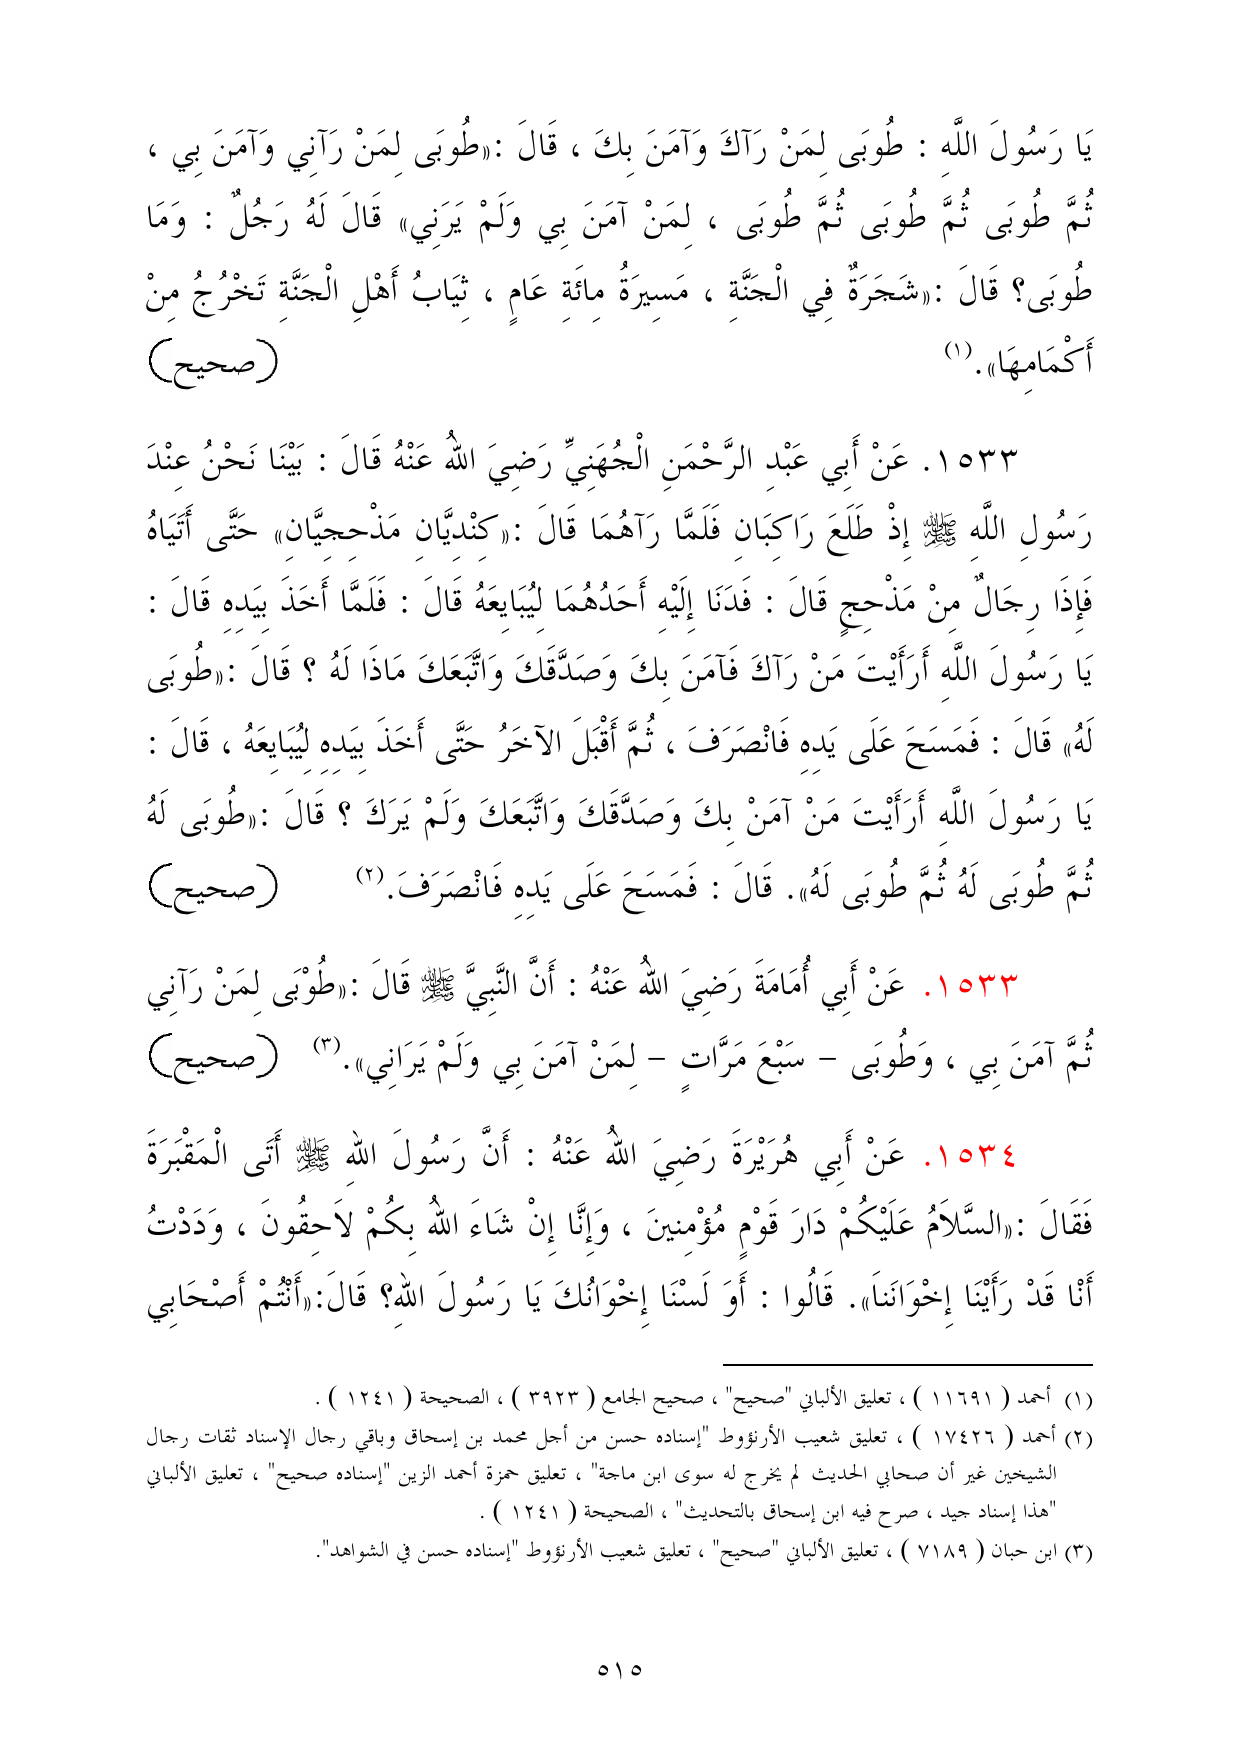 يَا رَسُولَ اللَّهِ : طُوبَى لِمَنْ رَآكَ وَآمَنَ بِكَ ، قَالَ :«طُوبَى لِمَنْ رَآنِي وَآمَنَ بِي ،
ثُمَّ طُوبَى ثُمَّ طُوبَى ثُمَّ طُوبَى ، لِمَنْ آمَنَ بِي وَلَمْ يَرَنِي» قَالَ لَهُ رَجُلٌ : وَمَا
طُوبَى؟ قَالَ :«شَجَرَةٌ فِي الْجَنَّةِ ، مَسِيرَةُ مِائَةِ عَامٍ ، ثِيَابُ أَهْلِ الْجَنَّةِ تَخْرُجُ مِنْ
أَكْمَامِهَا».(١) (صحيح)
١٥٣٣. عَنْ أَبِي عَبْدِ الرَّحْمَنِ الْجُهَنِيِّ رَضِيَ اللهُ عَنْهُ قَالَ : بَيْنَا نَحْنُ عِنْدَ
رَسُولِ اللَّهِ ﷺ إِذْ طَلَعَ رَاكِبَانِ فَلَمَّا رَآهُمَا قَالَ :«كِنْدِيَّانِ مَذْحِجِيَّانِ» حَتَّى أَتَيَاهُ
فَإِذَا رِجَالٌ مِنْ مَذْحِجٍ قَالَ : فَدَنَا إِلَيْهِ أَحَدُهُمَا لِيُبَايِعَهُ قَالَ : فَلَمَّا أَخَذَ بِيَدِهِ قَالَ :
يَا رَسُولَ اللَّهِ أَرَأَيْتَ مَنْ رَآكَ فَآمَنَ بِكَ وَصَدَّقَكَ وَاتَّبَعَكَ مَاذَا لَهُ ؟ قَالَ :«طُوبَى
لَهُ» قَالَ : فَمَسَحَ عَلَى يَدِهِ فَانْصَرَفَ ، ثُمَّ أَقْبَلَ الآخَرُ حَتَّى أَخَذَ بِيَدِهِ لِيُبَايِعَهُ ، قَالَ :
يَا رَسُولَ اللَّهِ أَرَأَيْتَ مَنْ آمَنْ بِكَ وَصَدَّقَكَ وَاتَّبَعَكَ وَلَمْ يَرَكَ ؟ قَالَ :«طُوبَى لَهُ
ثُمَّ طُوبَى لَهُ ثُمَّ طُوبَى لَهُ». قَالَ : فَمَسَحَ عَلَى يَدِهِ فَانْصَرَفَ.(٢) (صحيح)
١٥٣٣. عَنْ أَبِي أُمَامَةَ رَضِيَ اللهُ عَنْهُ : أَنَّ النَّبِيَّ ﷺ قَالَ :«طُوْبَى لِمَنْ رَآنِي
ثُمَّ آمَنَ بِي ، وَطُوبَى – سَبْعَ مَرَّاتٍ – لِمَنْ آمَنَ بِي وَلَمْ يَرَانِي».(٣) (صحيح)
١٥٣٤. عَنْ أَبِي هُرَيْرَةَ رَضِيَ اللهُ عَنْهُ : أَنَّ رَسُولَ اللهِ ﷺ أَتَى الْمَقْبَرَةَ
فَقَالَ :«السَّلاَمُ عَلَيْكُمْ دَارَ قَوْمٍ مُؤْمِنِينَ ، وَإِنَّا إِنْ شَاءَ اللهُ بِكُمْ لاَحِقُونَ ، وَدَدْتُ
أَنْا قَدْ رَأَيْنَا إِخْوَانَنَا». قَالُوا : أَوَ لَسْنَا إِخْوَانُكَ يَا رَسُولَ اللهِ؟ قَالَ:«أَنْتُمْ أَصْحَابِي
(١) أحمد ( ١١٦٩١ ) ، تعليق الألباني "صحيح" ، صحيح الجامع ( ٣٩٢٣ ) ، الصحيحة ( ١٢٤١ ) .
(٢) أحمد ( ١٧٤٢٦ ) ، تعليق شعيب الأرنؤوط "إسناده حسن من أجل محمد بن إسحاق وباقي رجال الإسناد ثقات رجال
الشيخين غير أن صحابي الحديث لم يخرج له سوى ابن ماجة" ، تعليق حمزة أحمد الزين "إسناده صحيح" ، تعليق الألباني
"هذا إسناد جيد ، صرح فيه ابن إسحاق بالتحديث" ، الصحيحة ( ١٢٤١ ) .
(٣) ابن حبان ( ٧١٨٩ ) ، تعليق الألباني "صحيح" ، تعليق شعيب الأرنؤوط "إسناده حسن في الشواهد".
٥١٥